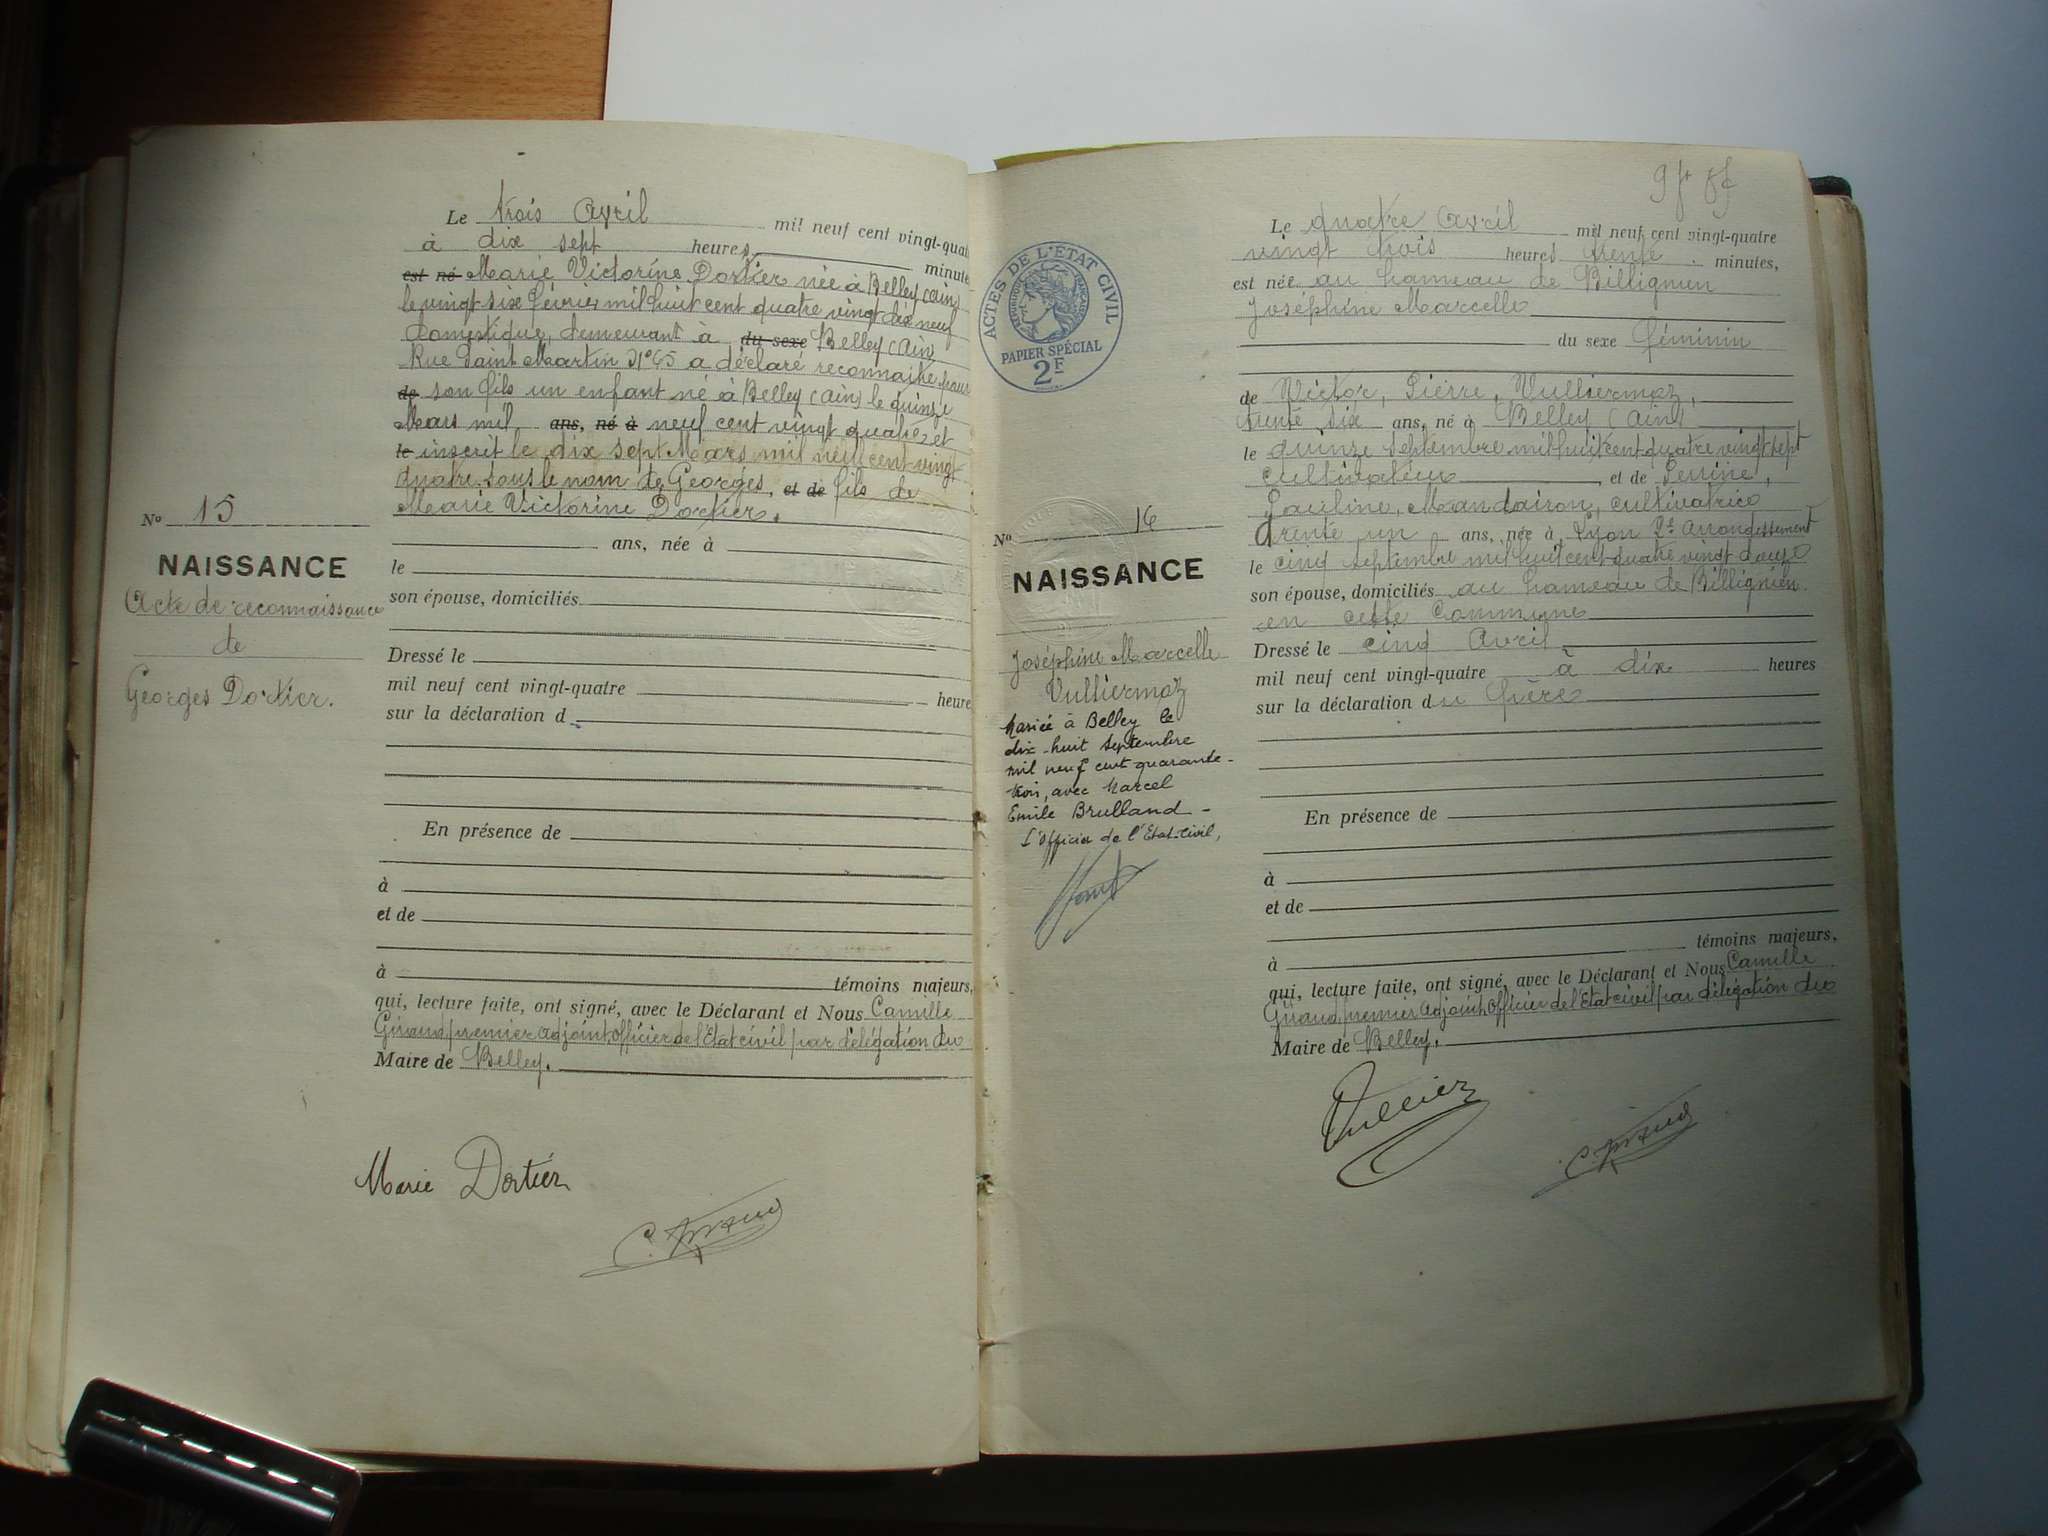 Le trois Avril mil neuf cent vingt-quat
à dix sept heures, minute
est né Marie Victorine Dortier née à Belley (Ain)
le vingt six février mil huit cent quatre vingt dix neuf
domestique, demeurant à du sexe Belley (Ain)
Rue Saint Martin N° 65 a déclaré reconnaitre pour
de son fils un enfant né à Belley (Ain) le quinze
Mars mil ans, né à neuf cent vingt quatre et
le inscrit le dix sept Mars mil neuf cent vingt
quatre sous le nom de Georges, et de fils de
Marie Victorine Dortier.
ans, née à
le
son épouse, domiciliés
Dressé le
mil neuf cent vingt-quatre heure
sur la déclaration d
En présence de
à
et de
à témoins majeurs,
qui, lecture faite, ont signé, avec le Déclarant et Nous Camille
Giraud, premier adjoint, Officier de l'Etat civil par délégation du
Maire de Belley.
Marie Dortier
C. Giraud
No 15
NAISSANCE
Acte de reconnaissance
de
Georges Dortier.
ACTES DE L'ÉTAT CIVIL
RÉPUBLIQUE FRANÇAISE
PAPIER SPÉCIAL
2F
No 16
NAISSANCE
Joséphine Marcelle
Vulliermoz
Mariée à Belley le
dix-huit Septembre
mil neuf cent quarante-
trois, avec Marcel
Emile Brulland -
L'Officier de l'Etat-Civil,
Le quatre Avril mil neuf cent vingt-quatre
vingt trois heures trente minutes,
est née au hameau de Billignin
Joséphine Marcelle
du sexe féminin
de Victor, Pierre, Vulliermoz,
trente six ans, né à Belley (Ain)
le quinze septembre mil huit cent quatre vingt sept
cultivateur, et de Perrine,
Pauline, Mandairon, cultivatrice
trente un ans, née à Lyon 2e Arrondissement
le cinq septembre mil huit cent quatre vingt douze
son épouse, domiciliés au hameau de Billignin
en cette commune
Dressé le cinq Avril
mil neuf cent vingt-quatre à dix heures
sur la déclaration du Père
En présence de
à
et de
à témoins majeurs,
qui, lecture faite, ont signé, avec le Déclarant et Nous Camille
Giraud, premier adjoint, Officier de l'Etat civil par délégation du
Maire de Belley.
C. Giraud